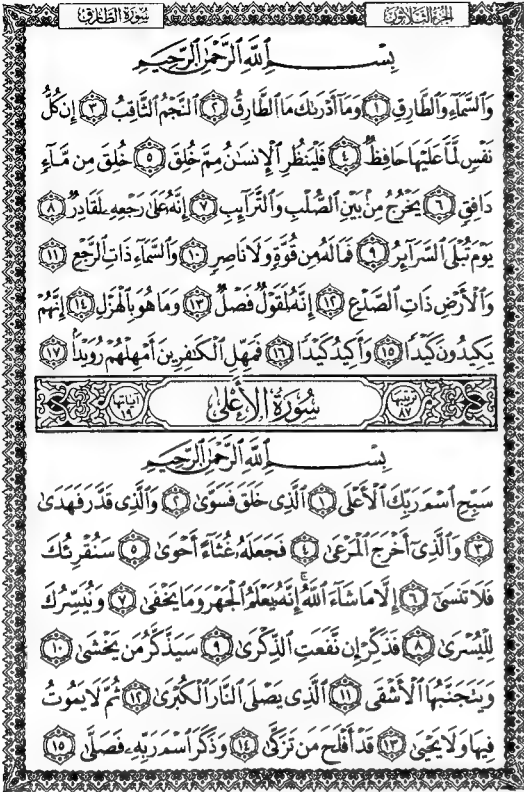 سُورَةُ الطَّارِقِ الجُزْءُ الثَّلَاثُونَ
بِسْمِ ٱللَّهِ ٱلرَّحْمَٰنِ ٱلرَّحِيمِ
وَٱلسَّمَآءِ وَٱلطَّارِقِ ١ وَمَآ أَدْرَىٰكَ مَا ٱلطَّارِقُ ٢ ٱلنَّجْمُ ٱلثَّاقِبُ ٣ إِن كُلُّ
نَفْسٍ لَّمَّا عَلَيْهَا حَافِظٌ ٤ فَلْيَنظُرِ ٱلْإِنسَٰنُ مِمَّ خُلِقَ ٥ خُلِقَ مِن مَّآءٍ
دَافِقٍ ٦ يَخْرُجُ مِنۢ بَيْنِ ٱلصُّلْبِ وَٱلتَّرَآئِبِ ٧ إِنَّهُۥ عَلَىٰ رَجْعِهِۦ لَقَادِرٌ ٨
يَوْمَ تُبْلَى ٱلسَّرَآئِرُ ٩ فَمَا لَهُۥ مِن قُوَّةٍ وَلَا نَاصِرٍ ١٠ وَٱلسَّمَآءِ ذَاتِ ٱلرَّجْعِ ١١
وَٱلْأَرْضِ ذَاتِ ٱلصَّدْعِ ١٢ إِنَّهُۥ لَقَوْلٌ فَصْلٌ ١٣ وَمَا هُوَ بِٱلْهَزْلِ ١٤ إِنَّهُمْ
يَكِيدُونَ كَيْدًا ١٥ وَأَكِيدُ كَيْدًا ١٦ فَمَهِّلِ ٱلْكَٰفِرِينَ أَمْهِلْهُمْ رُوَيْدًۢا ١٧
ترتيبها ٨٧ سُورَةُ الأَعْلَىٰ آياتها ١٩
بِسْمِ ٱللَّهِ ٱلرَّحْمَٰنِ ٱلرَّحِيمِ
سَبِّحِ ٱسْمَ رَبِّكَ ٱلْأَعْلَى ١ ٱلَّذِى خَلَقَ فَسَوَّىٰ ٢ وَٱلَّذِى قَدَّرَ فَهَدَىٰ
٣ وَٱلَّذِىٓ أَخْرَجَ ٱلْمَرْعَىٰ ٤ فَجَعَلَهُۥ غُثَآءً أَحْوَىٰ ٥ سَنُقْرِئُكَ
فَلَا تَنسَىٰٓ ٦ إِلَّا مَا شَآءَ ٱللَّهُ ۚ إِنَّهُۥ يَعْلَمُ ٱلْجَهْرَ وَمَا يَخْفَىٰ ٧ وَنُيَسِّرُكَ
لِلْيُسْرَىٰ ٨ فَذَكِّرْ إِن نَّفَعَتِ ٱلذِّكْرَىٰ ٩ سَيَذَّكَّرُ مَن يَخْشَىٰ ١٠
وَيَتَجَنَّبُهَا ٱلْأَشْقَى ١١ ٱلَّذِى يَصْلَى ٱلنَّارَ ٱلْكُبْرَىٰ ١٢ ثُمَّ لَا يَمُوتُ
فِيهَا وَلَا يَحْيَىٰ ١٣ قَدْ أَفْلَحَ مَن تَزَكَّىٰ ١٤ وَذَكَرَ ٱسْمَ رَبِّهِۦ فَصَلَّىٰ ١٥